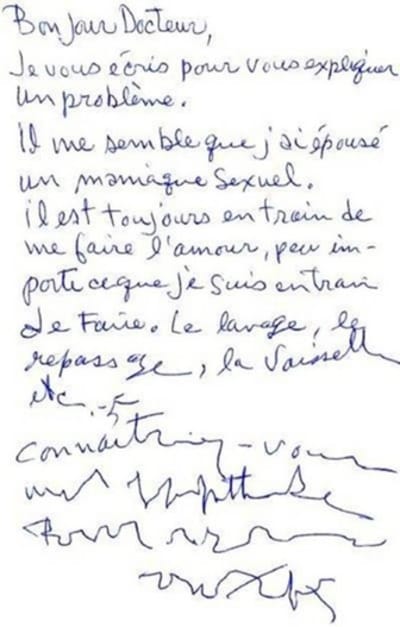 Bonjour Docteur,
Je vous écris pour vous expliquer
un problème.
Il me semble que j'ai épousé
un maniaque sexuel.
il est toujours en train de
me faire l'amour, peu im-
porte ce que je suis en train
de faire. Le lavage, le
repassage, la vaisselle
etc.
connaitriez-vous